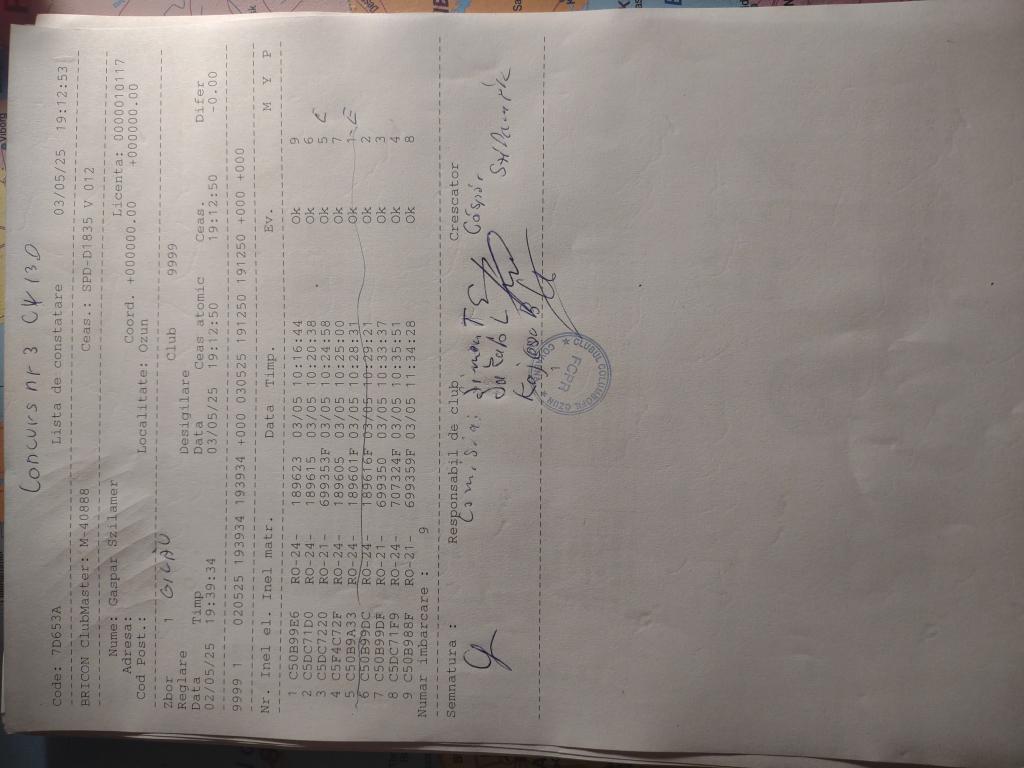 Concurs nr 3 CY 13D
Code: 7D653A Lista de constatare 03/05/25 19:12:53
BRICON ClubMaster: M-40888 Ceas.: SPD-D1835 V 012
Nume: Gaspar Szilamer Licenta: 0000010117
Adresa: Coord. +000000.00 +000000.00
Cod Post.: Localitate: Ozun
Zbor 1 GILAU Club 9999
Reglare Desigilare
Data Timp Data Ceas atomic Ceas. Difer
02/05/25 19:39:34 03/05/25 19:12:50 19:12:50 -0.00
9999 1 020525 193934 193934 +000 030525 191250 191250 +000 +000
Nr. Inel el. Inel matr. Data Timp. Ev. M Y P
1 C50B99E6 RO-24- 189623 03/05 10:16:44 Ok 9
2 C5DC71D0 RO-24- 189615 03/05 10:20:38 Ok 6
3 C5DC72D0 RO-21- 699353F 03/05 10:24:58 Ok 5
4 C5F4C72F RO-24- 189605 03/05 10:25:00 Ok 7
5 C50B9A33 RO-24- 189601F 03/05 10:28:31 Ok 1
6 C50B99DC RO-24- 189616F 03/05 10:29:21 Ok 2
7 C50B99DF RO-21- 699350 03/05 10:33:37 Ok 3
8 C5DC71F9 RO-24- 707324F 03/05 10:35:51 Ok 4
9 C50B988F RO-21- 699359F 03/05 11:34:28 Ok 8
Numar imbarcare : 9
Semnatura : Responsabil de club Crescator
Comisia: Gáspár Szilamér
CLUBUL COLUMBOFIL OZUN
FCPR